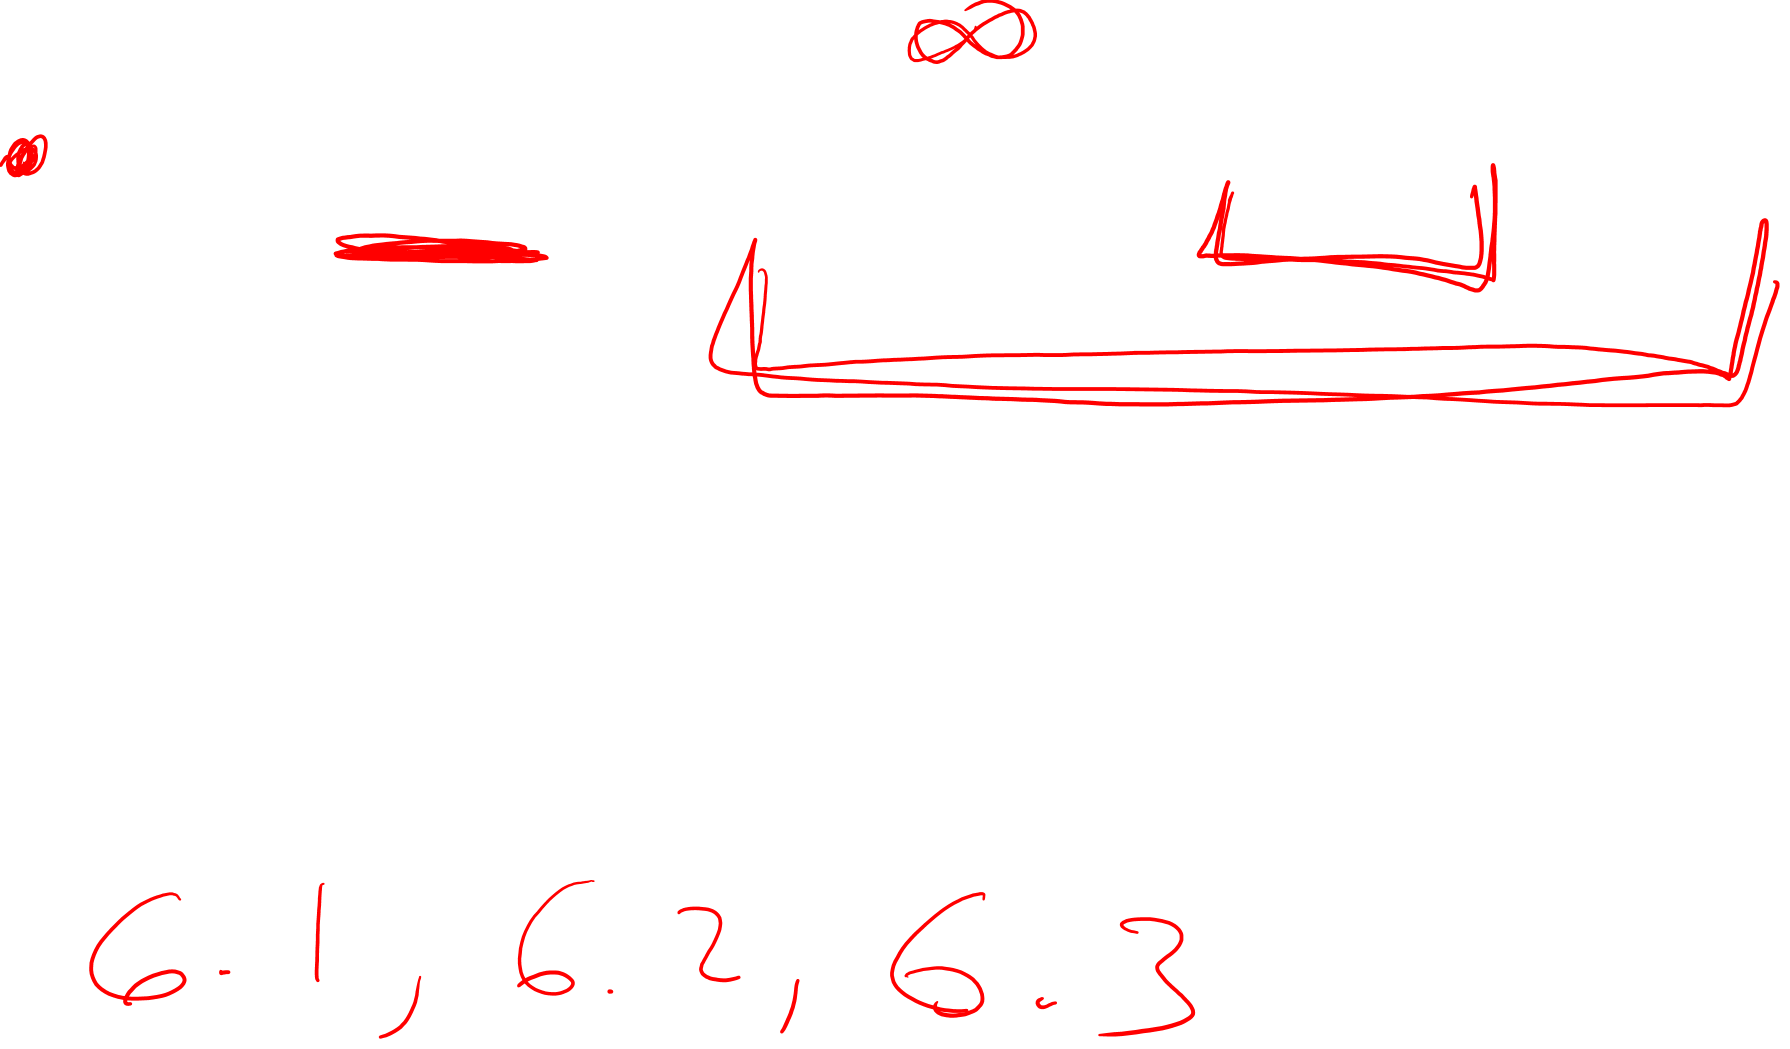 ∞
6.1, 6.2, 6.3